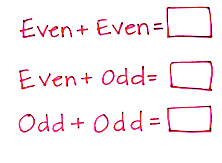 Even + Even =
Even + Odd =
Odd + Odd =